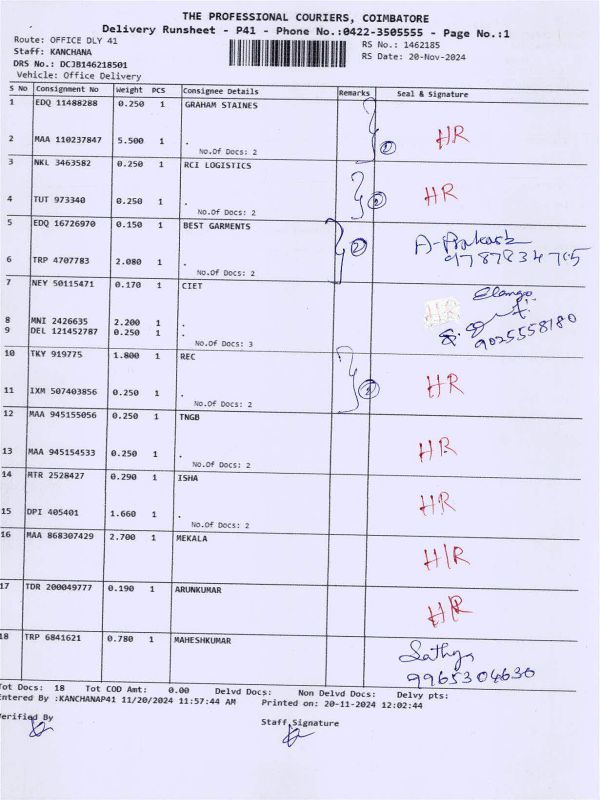 THE PROFESSIONAL COURIERS, COIMBATORE
Delivery Runsheet - P41 - Phone No.:0422-3505555 - Page No.:1
Route: OFFICE DLY 41 RS No.: 1462185
Staff: KANCHANA RS Date: 20-Nov-2024
DRS No.: DCJB146218501
Vehicle: Office Delivery
S No Consignment No Weight PCS Consignee Details Remarks Seal & Signature
1 EDQ 11488288 0.250 1 GRAHAM STAINES
2 MAA 110237847 5.500 1 . HR
No.Of Docs: 2 2
3 NKL 3463582 0.250 1 RCI LOGISTICS
4 TUT 973340 0.250 1 . 2 HR
No.Of Docs: 2
5 EDQ 16726970 0.150 1 BEST GARMENTS
2 A-Prakash
6 TRP 4707783 2.080 1 . 9787834715
No.Of Docs: 2
7 NEY 50115471 0.170 1 CIET Elango
HR
8 MNI 2426635 2.200 1 .
9 DEL 121452787 0.250 1 . 9025558180
No.Of Docs: 3
10 TKY 919775 1.800 1 REC
11 IXM 507403856 0.250 1 . 2 HR
No.Of Docs: 2
12 MAA 945155056 0.250 1 TNGB
13 MAA 945154533 0.250 1 . HR
No.Of Docs: 2
14 MTR 2528427 0.290 1 ISHA
HR
15 DPI 405401 1.660 1 .
No.Of Docs: 2
16 MAA 868307429 2.700 1 MEKALA
H/R
17 TDR 200049777 0.190 1 ARUNKUMAR
H/R
18 TRP 6841621 0.780 1 MAHESHKUMAR
Sathya
9965304630
Tot Docs: 18 Tot COD Amt: 0.00 Delvd Docs: Non Delvd Docs: Delvy pts:
Entered By :KANCHANAP41 11/20/2024 11:57:44 AM Printed on: 20-11-2024 12:02:44
Verified By Staff Signature